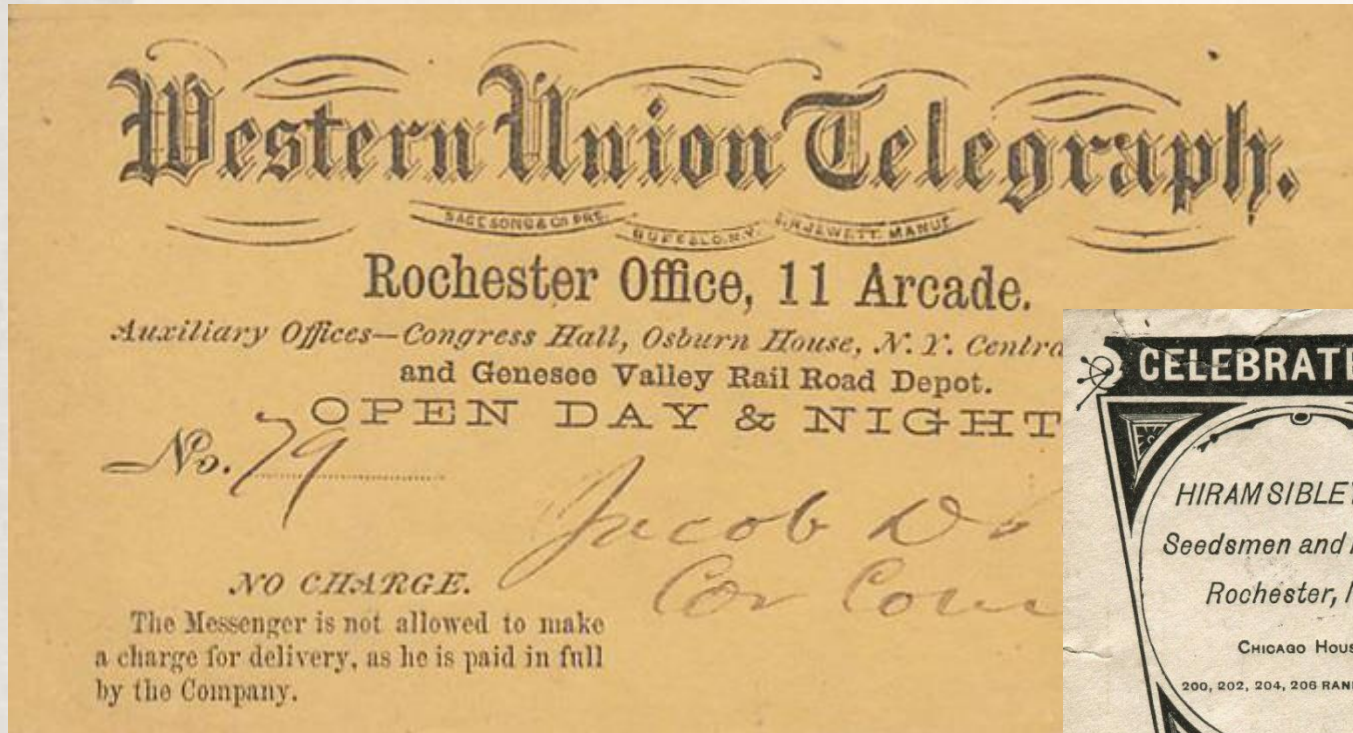 Western Union Telegraph.
SAGE SONS & CO PRS. BUFFALO, N.Y. E.R. JEWETT. MANUF
Rochester Office, 11 Arcade.
Auxiliary Offices—Congress Hall, Osburn House, N. Y. Centra
and Genesee Valley Rail Road Depot.
OPEN DAY & NIGHT
No. 79
Jacob
Cor
NO CHARGE.
The Messenger is not allowed to make
a charge for delivery, as he is paid in full
by the Company.
CELEBRATE
HIRAM SIBLEY
Seedsmen and
Rochester,
CHICAGO HOUS
200, 202, 204, 206 RAN